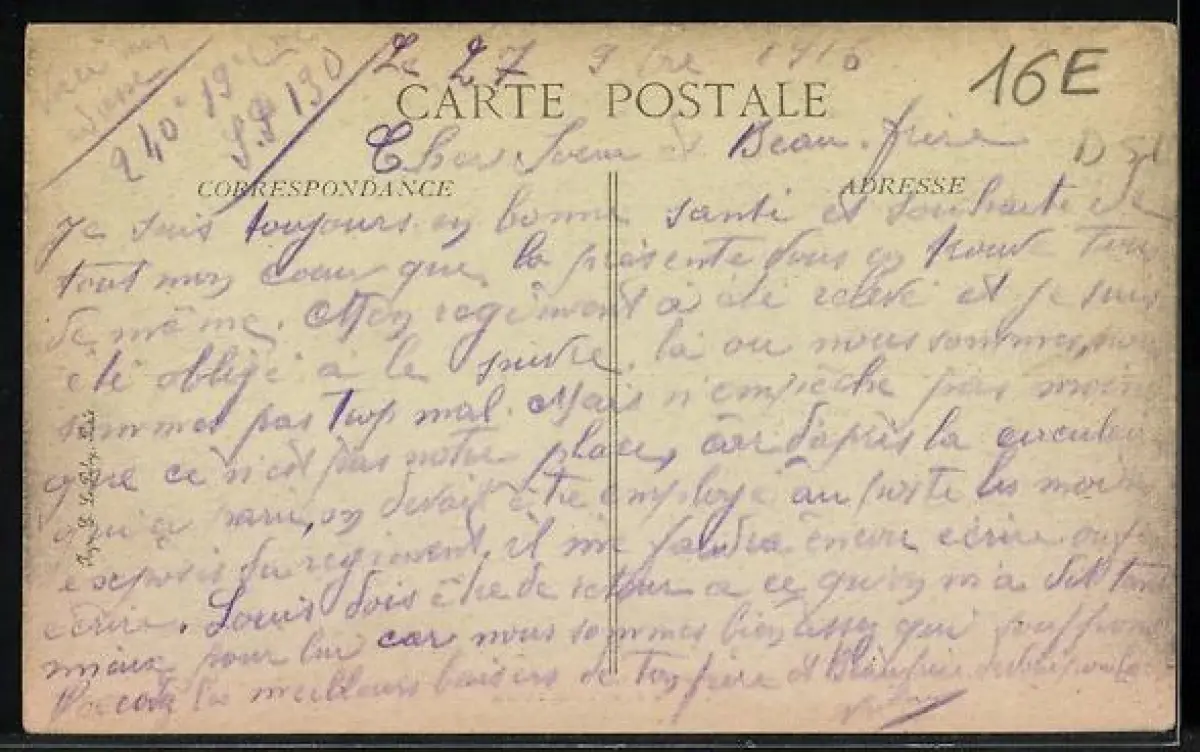 Voici mon adresse
240e 19e
S.P 130
Le 27 9bre 1916
16E
CARTE POSTALE
Cher Soeur & Beau-frère
CORRESPONDANCE
ADRESSE
Je suis toujours en bonne santé et souhaite de
tout mon coeur que la présente vous en trouve
de même. Mon regiment à été relevé et je suis
été obligé à le suivre. là ou nous sommes, nous
sommes pas trop mal. Mais n'empêche pas moins
que ce n'est pas notre place, car d'après la circulaire
qui a paru, on devait être employé au poste les moins
exposés du regiment. il me faudra encore écrire ou faire
écrire. Louis dois être de retour a ce qu'on m'a dit tant
mieux pour lui car nous sommes bien assez qui souffrons
les meilleurs baisers de ton frère et Beaufrère